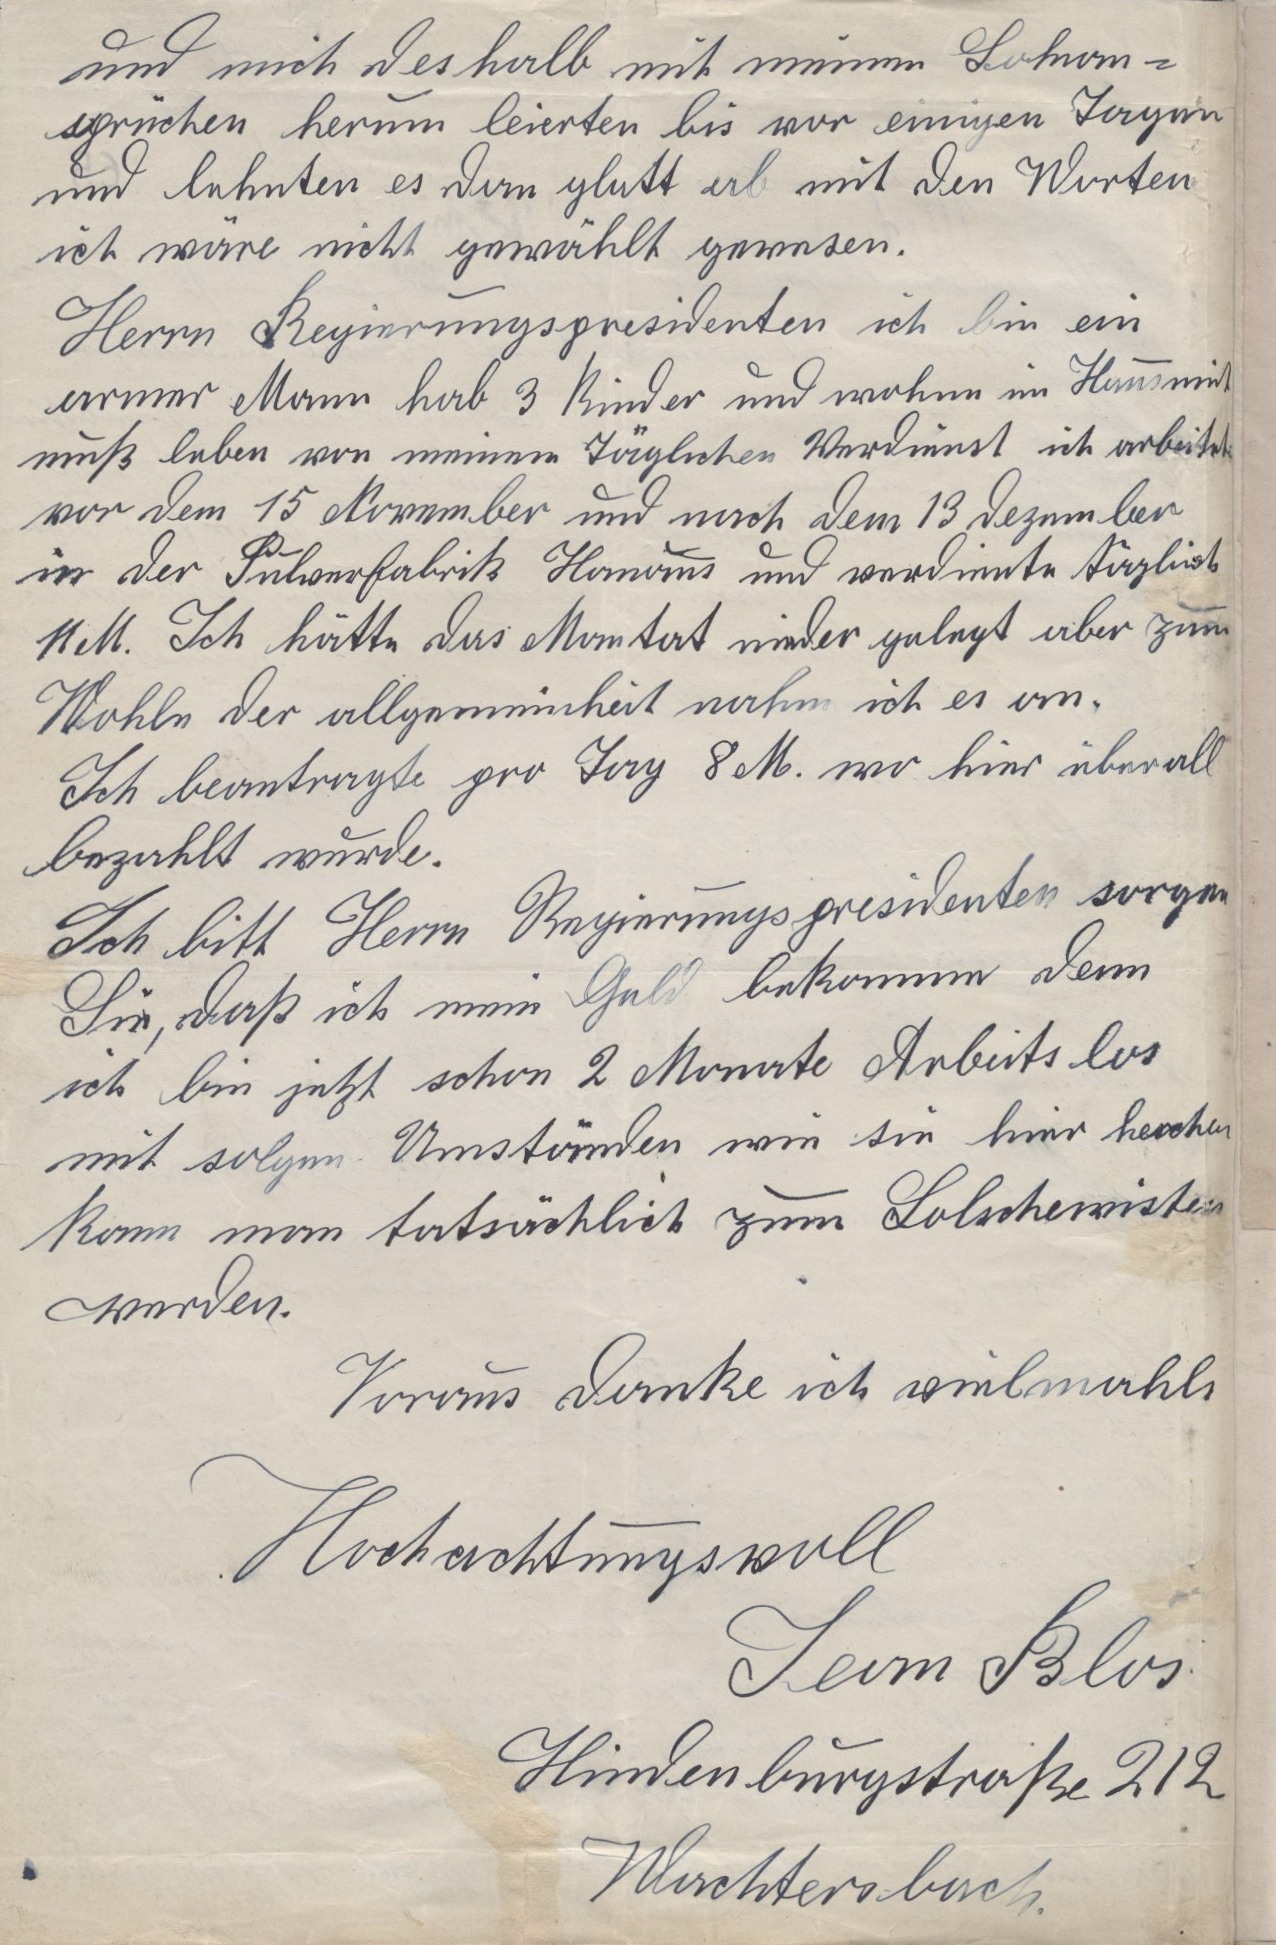 und mich deshalb mit meinen Lohnan=
sprüchen herum leierten bis vor einigen Tagen
und lehnten es dan glatt ab mit den Worten
ich wäre nicht gewählt gewesen.
Herrn Regierungspresidenten ich bin ein
armer Mann hab 3 Kinder und wohne in Hausmiet
muß leben von meinem Täglichen Verdienst ich arbeitete
vor dem 15 November und nach dem 13 Dezember
in der Pulverfabrik Hanaus und verdiente täglich
11 M. Ich hätte das Mantat nieder gelegt aber zum
Wohle der allgemeinheit nahm ich es an.
Ich beantragte pro Tag 8 M. wo hier überall
bezahlt wurde.
Ich bitt Herrn Regierungspresidenten sorgen
Sie, daß ich mein Geld bekomme denn
ich bin jetzt schon 2 Monate Arbeitslos
mit solgen Umständen wie sie hier herchen
kann man tatsächlich zum Bolschewisten
werden.
Voraus danke ich vielmahls
Hochachtungsvoll
Jean Blos.
Hindenburgstraße 212
Wächtersbach.